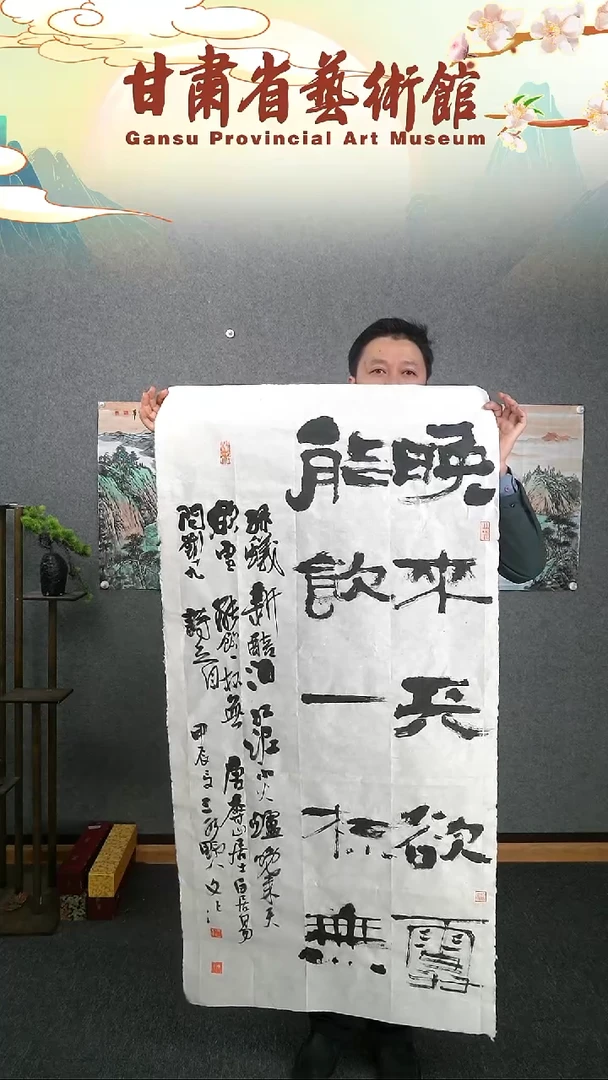 甘肅省藝術館
Gansu Provincial Art Museum
晚來天欲雪
能飲一杯無
綠蟻新醅酒紅泥小火爐晚来天
欲雪能飲一杯無唐香山居士白居易
問劉十九詩之句甲辰